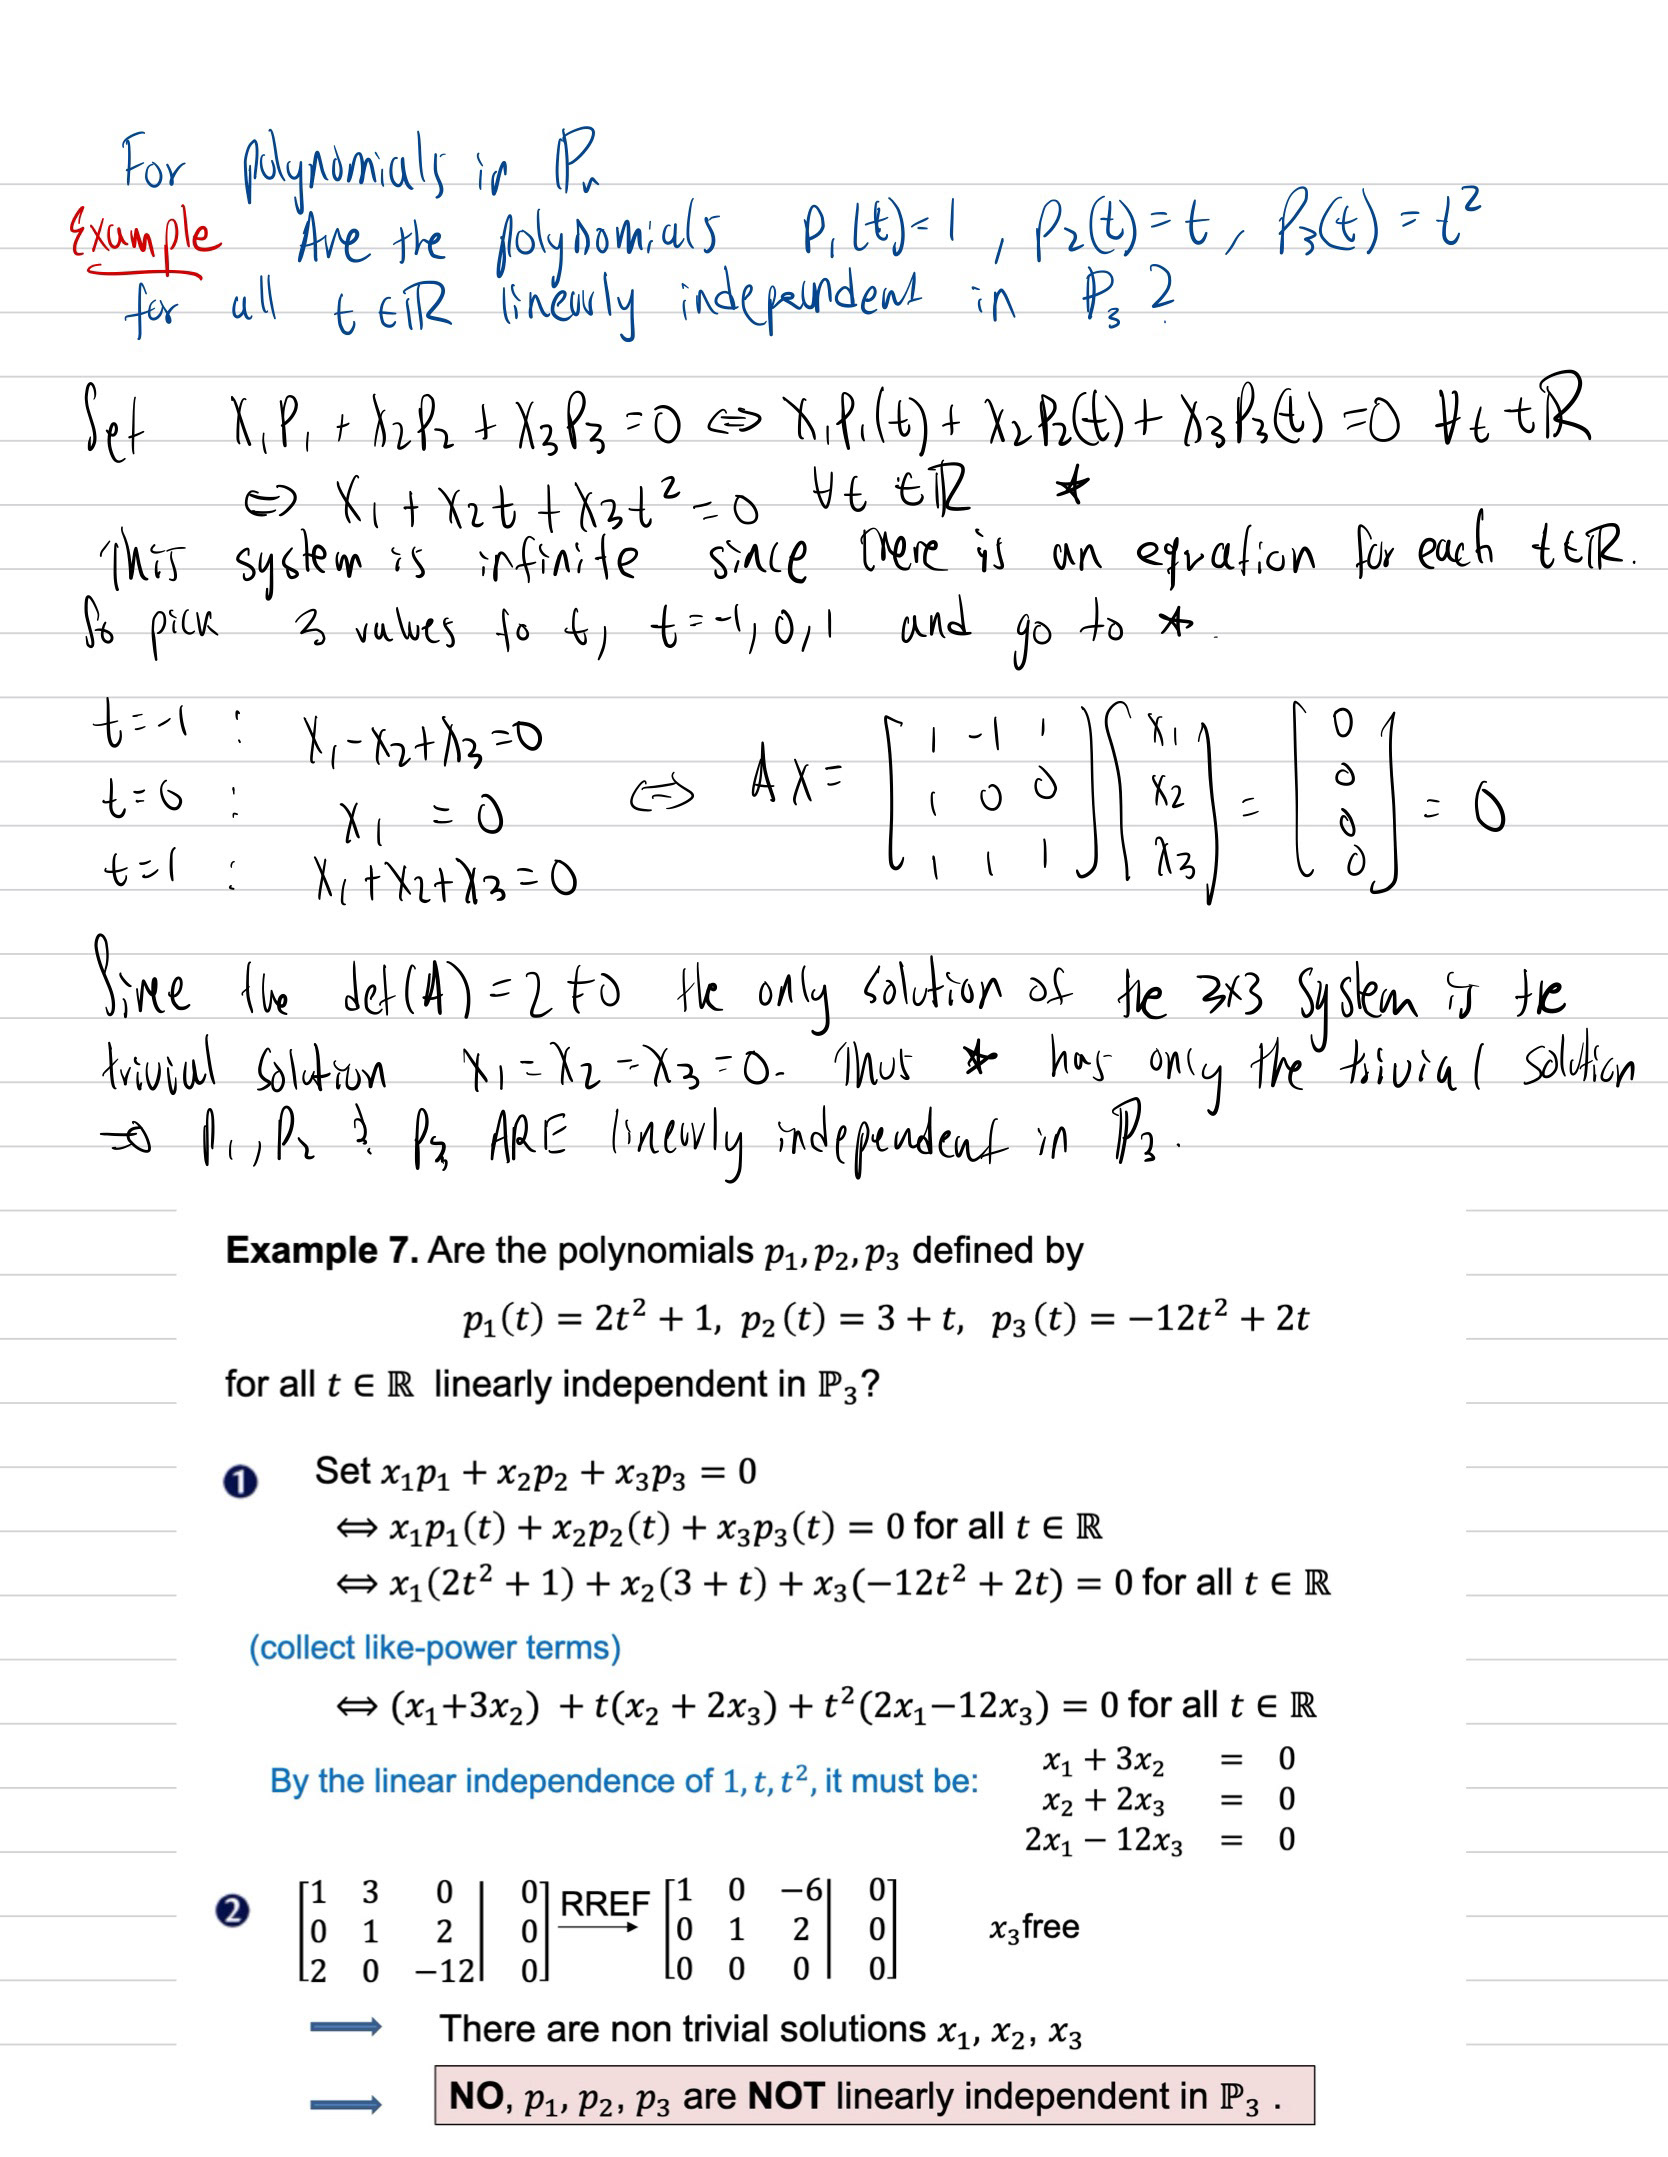 For polynomials in ℙn
Example Are the polynomials P₁(t)=1, P₂(t)=t, P₃(t)=t²
for all t∈ℝ linearly independent in ℙ₃?
Set x₁P₁ + x₂P₂ + x₃P₃ = 0 ⇔ x₁P₁(t) + x₂P₂(t) + x₃P₃(t) = 0 ∀t ∈ℝ
⇔ x₁ + x₂t + x₃t² = 0 ∀t ∈ℝ ★
This system is infinite since there is an equation for each t∈ℝ.
So pick 3 values fo t, t=-1,0,1 and go to ★.
t=-1 : x₁-x₂+x₃=0
t=0 : x₁ = 0
t=1 : x₁+x₂+x₃=0
⇔ Ax = [1 -1 1; 1 0 0; 1 1 1] [x₁; x₂; x₃] = [0; 0; 0; 0] = 0
Since the det(A) = 2 ≠0 the only solution of the 3x3 system is the
trivial solution x₁ = x₂ = x₃ = 0. Thus ★ has only the trivial solution
⇒ P₁, P₂ & P₃ ARE linearly independent in ℙ₃.
Example 7. Are the polynomials p₁, p₂, p₃ defined by
p₁(t) = 2t² + 1, p₂(t) = 3 + t, p₃(t) = −12t² + 2t
for all t ∈ ℝ linearly independent in ℙ₃?
1 Set x₁p₁ + x₂p₂ + x₃p₃ = 0
⇔ x₁p₁(t) + x₂p₂(t) + x₃p₃(t) = 0 for all t ∈ ℝ
⇔ x₁(2t² + 1) + x₂(3 + t) + x₃(−12t² + 2t) = 0 for all t ∈ ℝ
(collect like-power terms)
⇔ (x₁+3x₂) + t(x₂ + 2x₃) + t²(2x₁−12x₃) = 0 for all t ∈ ℝ
By the linear independence of 1, t, t², it must be:
x₁ + 3x₂ = 0
x₂ + 2x₃ = 0
2x₁ − 12x₃ = 0
2 [1 3 0 | 0; 0 1 2 | 0; 2 0 −12 | 0] RREF → [1 0 −6 | 0; 0 1 2 | 0; 0 0 0 | 0] x₃ free
⇒ There are non trivial solutions x₁, x₂, x₃
⇒ NO, p₁, p₂, p₃ are NOT linearly independent in ℙ₃ .